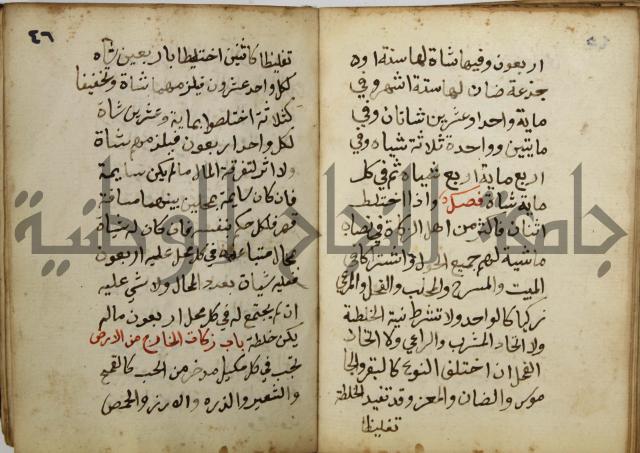 اربعون وفيها شاة لها سنة او
جذعة ضان لها ستة اشهر وفي
ماية واحد وعشرين شاتان وفي
مايتين وواحدة ثلاثة شياه وفي
اربع ماية اربع شياه ثم في كل
ماية شاة فصل واذا اختلط
اثنان فاكثر من اهل الزكاة في نصاب
ماشية لهم جميع الحول واشتركا في
المبيت والمسرح والمحلب والفحل والمرعى
زكيا كالواحد ولا تشترط نية الخلطة
ولا اتحاد المشرب والراعي ولا اتحاد
الفحل ان اختلف النوع كالبقر والجا
موس والضان والمعز وقد تفيد الخلطة
تغليظا
٤٦
تغليظا كاثنين اختلطا باربعين شاه
لكل واحد عشرون فيلزمهما شاة وتخفيفا
كثلاثة اختلطوا بماية وعشرين شاة
لكل واحد اربعون فيلزمهم شاة
ولا اثر لتفرقة المال مالم يكن سايمة
فان كان سايمة بمحلين بينهما مسافة
قصر فلكل حكم بنفسه فان كان له شياه
بمحال متباعدة في كل محل عليه اربعون
فعليه شياه بعدد المحال ولا شي عليه
ان لم يجتمع له في كل محل اربعون مالم
يكن خلطة باب زكات الخارج من الارض
تجب في كل مكيل مدخر من الحب كالقمح
والشعير والذره والارز والحمص
جامعة النجاح الوطنية